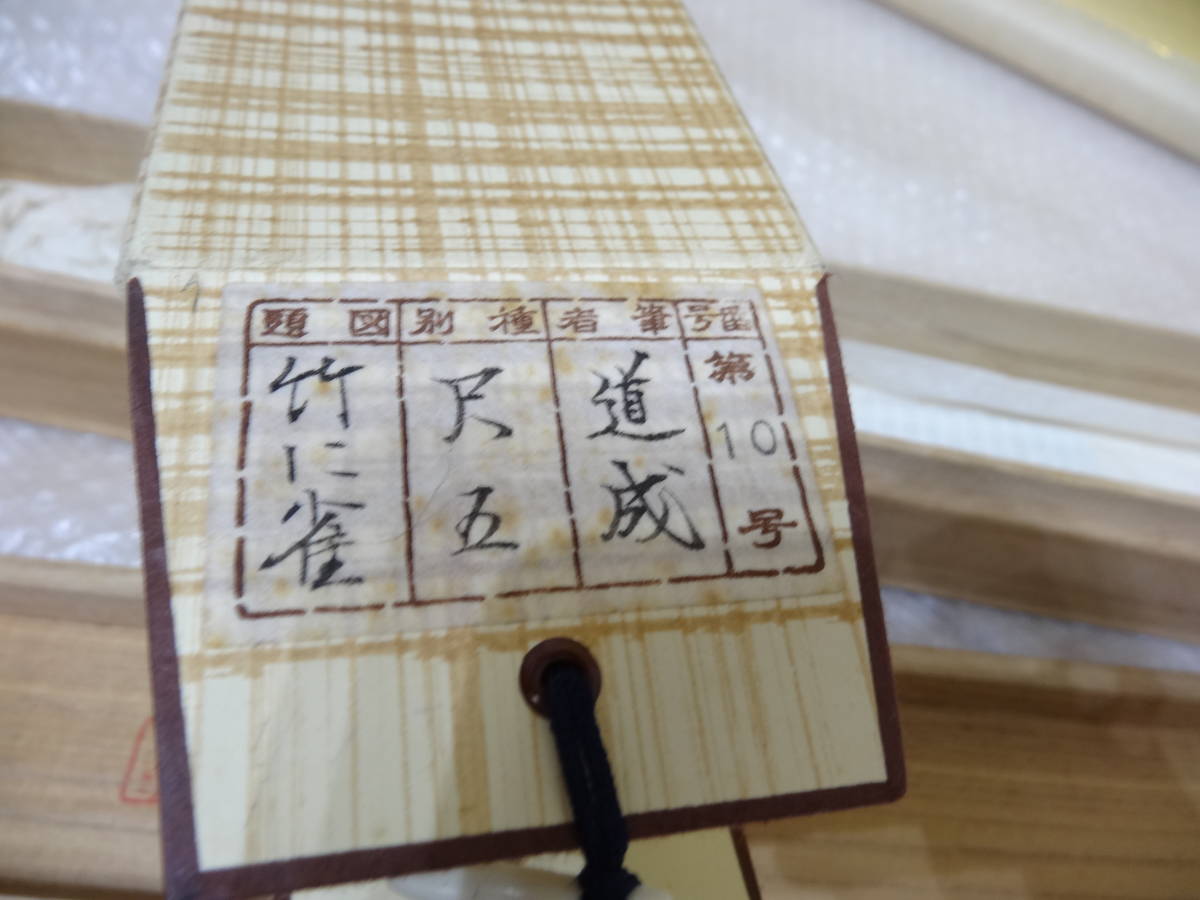 番号
第10号
筆者
道成
種別
尺五
図題
竹に雀